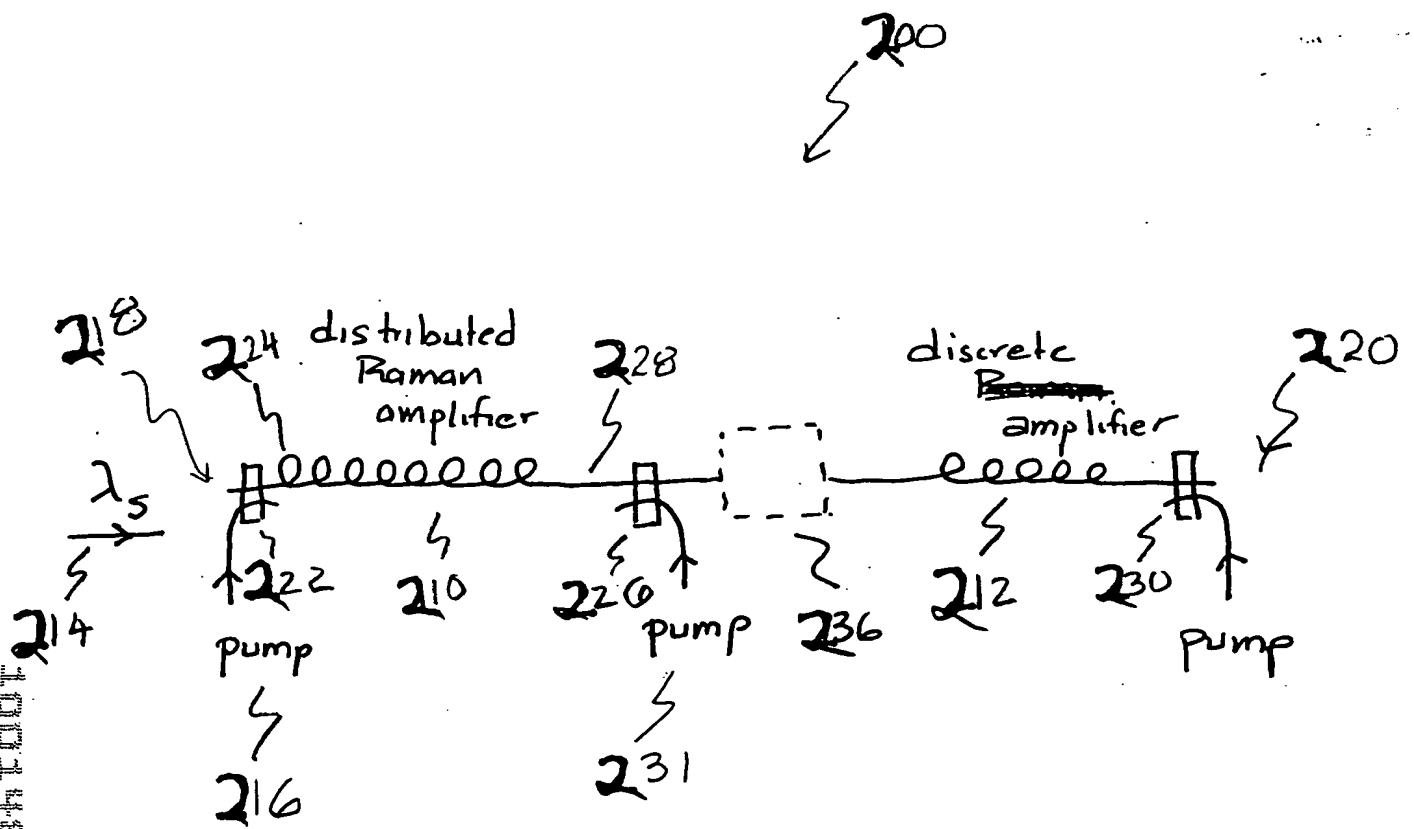 200
218
224
distributed
Raman
amplifier
228
discrete
amplifier
220
λs
214
222
210
226
236
212
230
pump
pump
pump
216
231